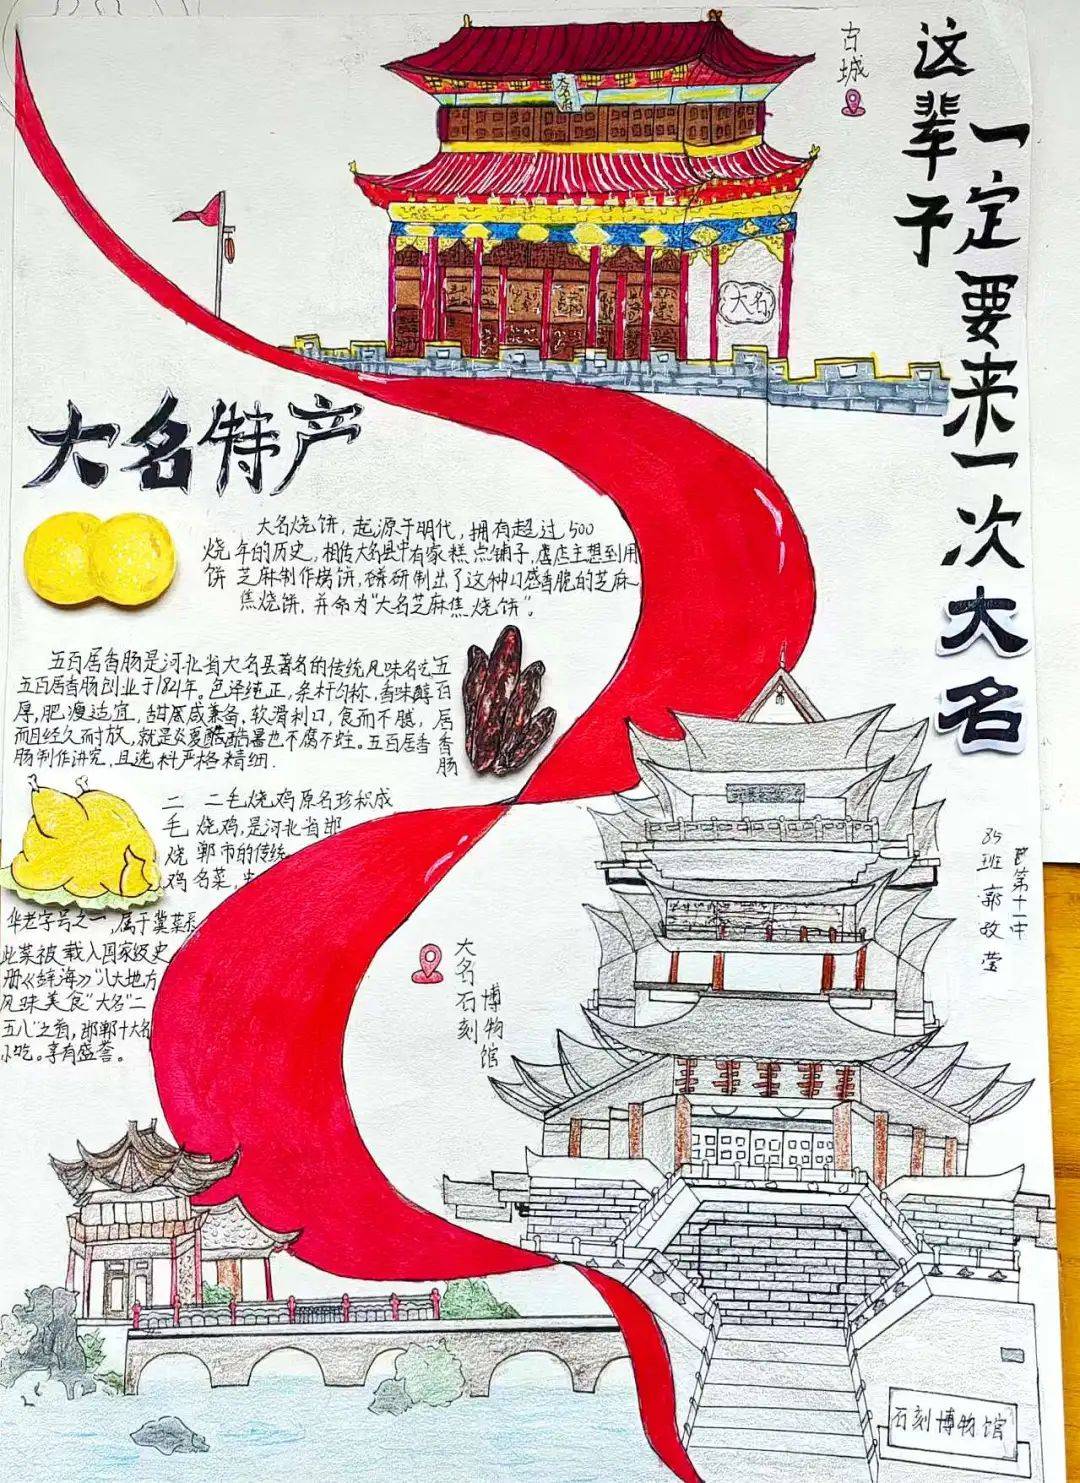 这辈子
一定要来一次大名
古城
大名府
大名
大名特产
烧饼
大名烧饼，起源于明代，拥有超过500
年的历史，相传大名县中有家糕点铺子，店主想到用
芝麻制作烤饼，研制出了这种口感香脆的芝麻
焦烧饼，并命为“大名芝麻焦烧饼”。
五百居香肠
五百居香肠是河北省大名县著名的传统风味名吃
五百居香肠创业于1821年。色泽纯正，条杆匀称，香味醇
厚，肥瘦适宜，甜咸兼备，软滑利口，食而不腻，
而且经久耐放，就是炎夏酷暑也不腐不蛀。五百居香
肠制作讲究，且选料严格精细.
二毛烧鸡
二毛烧鸡原名珍积成
烧鸡，是河北省邯
郸市的传统
名菜，
华老字号之一，属于冀菜系
此菜被载入国家级史
册《辞海》“八大地方
风味美食”大名“二
五八”之首，邯郸十大名
小吃。享有盛誉。
大名石刻
博物馆
第十一中
85班 郭
石刻博物馆